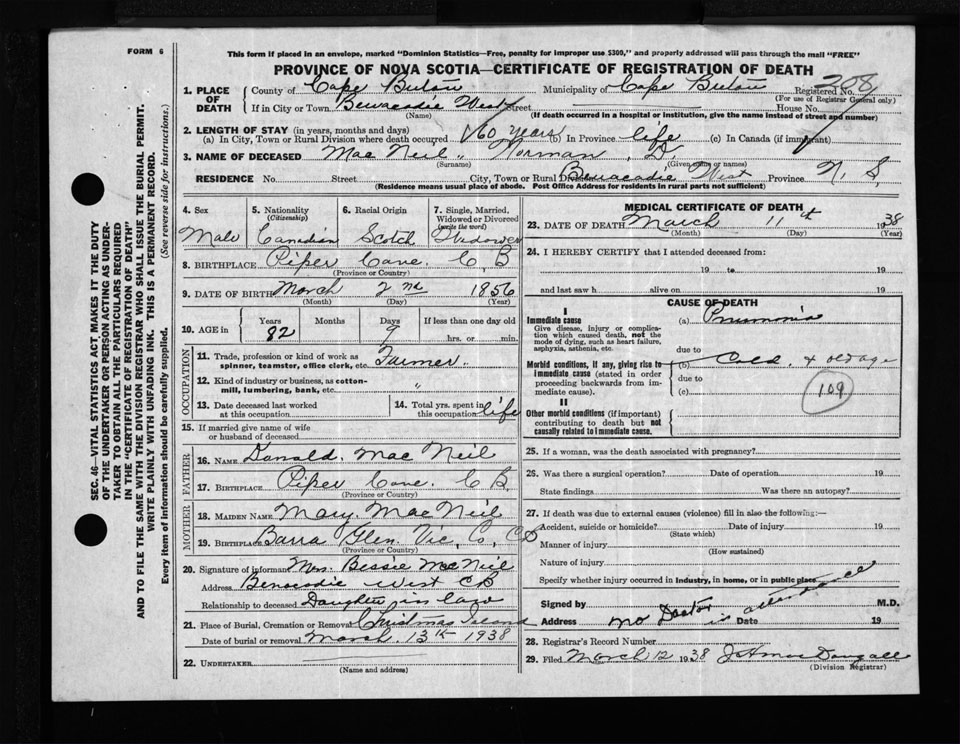 FORM 6
This form if placed in an envelope, marked "Dominion Statistics—Free, penalty for improper use $300," and properly addressed will pass through the mail "FREE"
PROVINCE OF NOVA SCOTIA—CERTIFICATE OF REGISTRATION OF DEATH
208
1. PLACE OF DEATH County of Cape Breton Municipality of Cape Breton Registered No.
(For use of Registrar General only)
If in City or Town Benacadie West Street House No.
(Name) (If death occurred in a hospital or institution, give the name instead of street and number)
2. LENGTH OF STAY (in years, months and days)
(a) In City, Town or Rural Division where death occurred 60 years (b) In Province life (c) In Canada (if immigrant)
3. NAME OF DECEASED Mac Neil, Norman, D.
(Surname) (Given name or names)
RESIDENCE No. Street City, Town or Rural Division Benacadie West Province N. S.
(Residence means usual place of abode. Post Office Address for residents in rural parts not sufficient)
4. Sex Male
5. Nationality (Citizenship) Canadian
6. Racial Origin Scotch
7. Single, Married, Widowed or Divorced (write the word) Widower
8. BIRTHPLACE Piper Cove. C, B
(Province or Country)
9. DATE OF BIRTH March 2nd 1856
(Month) (Day) (Year)
10. AGE in Years 82 Months Days 9 If less than one day old
hrs. or min.
OCCUPATION
11. Trade, profession or kind of work as spinner, teamster, office clerk, etc. Farmer
12. Kind of industry or business, as cotton-mill, lumbering, bank, etc. "
13. Date deceased last worked at this occupation
14. Total yrs. spent in this occupation life
15. If married give name of wife or husband of deceased
FATHER
16. NAME Donald. Mac Neil
17. BIRTHPLACE Piper Cove. C B.
(Province or Country)
MOTHER
18. MAIDEN NAME Mary. MacNeil
19. BIRTHPLACE Barra Glen. Vic, Co, C B
(Province or Country)
20. Signature of informant Mrs. Bessie McNeil
Address Benacadie West CB
Relationship to deceased Daughter in law
21. Place of Burial, Cremation or Removal Christmas Island
Date of burial or removal March. 13th 1938
22. UNDERTAKER
(Name and address)
MEDICAL CERTIFICATE OF DEATH
23. DATE OF DEATH March 11th 1938
(Month) (Day) (Year)
24. I HEREBY CERTIFY that I attended deceased from:
19 to 19
and last saw h alive on 19
CAUSE OF DEATH
I
Immediate cause (a) Pnumonia
Give disease, injury or complication which caused death, not the mode of dying, such as heart failure, asphyxia, asthenia, etc.
due to
Morbid conditions, if any, giving rise to immediate cause (stated in order proceeding backwards from immediate cause). (b) Cold & old age
due to
(c)
109
II
Other morbid conditions (if important) contributing to death but not causally related to immediate cause.
25. If a woman, was the death associated with pregnancy?
26. Was there a surgical operation? Date of operation 19
State findings Was there an autopsy?
27. If death was due to external causes (violence) fill in also the following:—
Accident, suicide or homicide? Date of injury 19
(State which)
Manner of injury
(How sustained)
Nature of injury
Specify whether injury occurred in industry, in home, or in public place
Signed by M.D.
Address no Doctor in attendance Date 19
28. Registrar's Record Number
29. Filed March 12 1938 MacDougall
(Division Registrar)
SEC. 46—VITAL STATISTICS ACT MAKES IT THE DUTY
OF THE UNDERTAKER OR PERSON ACTING AS UNDER-
TAKER TO OBTAIN ALL THE PARTICULARS REQUIRED
IN THE "CERTIFICATE OF REGISTRATION OF DEATH"
AND TO FILE THE SAME WITH THE DIVISION REGISTRAR WHO SHALL ISSUE THE BURIAL PERMIT.
WRITE PLAINLY WITH UNFADING INK. THIS IS A PERMANENT RECORD.
Every item of information should be carefully supplied. (See reverse side for instructions.)